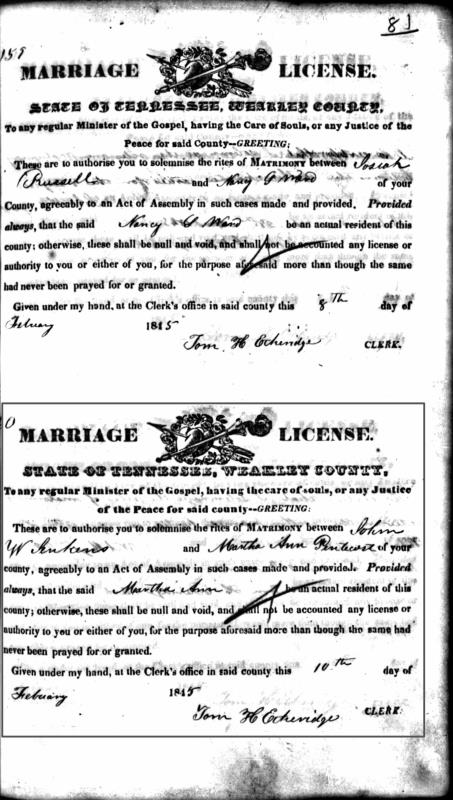 81
159
MARRIAGE LICENSE.
STATE OF TENNESSEE, WEAKLEY COUNTY,
To any regular Minister of the Gospel, having the Care of Souls, or any Justice of the
Peace for said County--GREETING:
These are to authorise you to solemnise the rites of MATRIMONY between Josiah
Russell and Nancy G Ward of your
County, agreeably to an Act of Assembly in such cases made and provided. Provided
always, that the said Nancy G Ward be an actual resident of this
county; otherwise, these shall be null and void, and shall not be accounted any license or
authority to you or either of you, for the purpose aforesaid more than though the same
had never been prayed for or granted.
Given under my hand, at the Clerk's office in said county this 8th day of
Febuary 1845
Tom H Etheridge CLERK.
0
MARRIAGE LICENSE.
STATE OF TENNESSEE, WEAKLEY COUNTY,
To any regular Minister of the Gospel, having the care of souls, or any Justice
of the Peace for said county--GREETING:
These are to authorise you to solemnise the rites of MATRIMONY between John
W Jenkens and Martha Ann Pentecost of your
county, agreeably to an Act of Assembly in such cases made and provided. Provided
always, that the said Martha Ann be an actual resident of this
county; otherwise, these shall be null and void, and shall not be accounted any license or
authority to you or either of you, for the purpose aforesaid more than though the same had
never been prayed for or granted.
Given under my hand, at the Clerk's office in said county this 10th day of
Febuary 1845
Tom H Etheridge CLERK